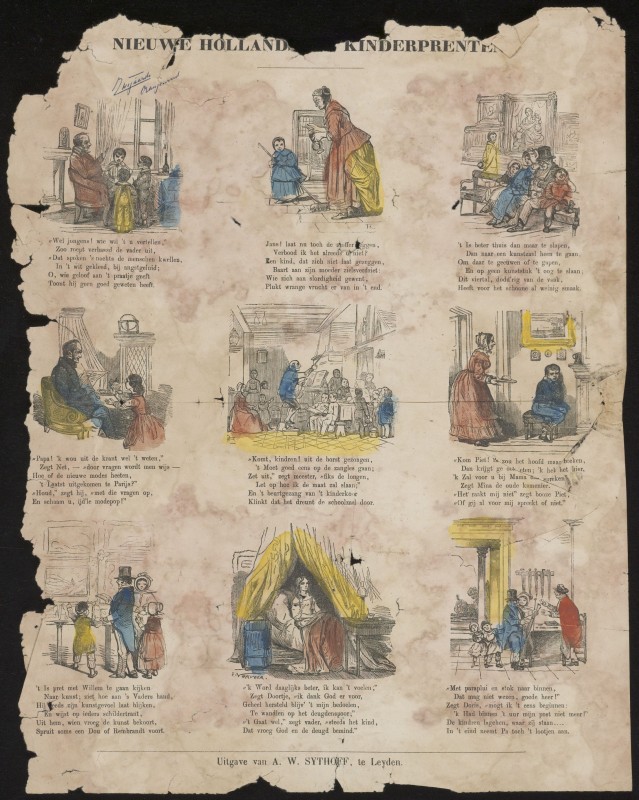 NIEUWE HOLLANDS KINDERPRENTEN
«Wel jongens! wie wil 't u vertellen,"
Zoo roept verheugd de vader uit,
«Dat spoken 's nachts de menschen kwellen,
In 't wit gekleed, bij angstgeluid;
O, wie geloof aan 't praatje geeft
Toont hij geen goed geweten heeft.
Jans! laat nu toch de stoffer liggen,
Verbood ik het alreeds u niet!
Een kind, dat zich niet laat gezeggen,
Baart aan zijn moeder zielsverdriet:
Wie zich aan slordigheid gewent,
Plukt wrange vrucht er van in 't end.
't Is beter thuis dan maar te slapen,
Dan naar een kunstzaal heen te gaan,
Om daar te geeuwen of te gapen,
En op geen kunststuk 't oog te slaan;
Dit viertal, dicht bij van de vaak,
Heeft voor het schoone al weinig smaak.
«Papa! 'k wou uit de krant wel 't weten,"
Zegt Net, — «door vragen wordt men wijs —
Hoe of de nieuwe moden heeten,
't Laatst uitgekomen te Parijs?"
«Houd," zegt hij, «met die vragen op,
En schaam u, ijd'le modepop!"
«Komt, kindren! uit de borst gezongen,
't Moet goed eens op de zangles gaan;
Zet uit," zegt meester, «fiks de longen,
Let op hoe ik de maat zal slaan;"
En 't beurtgezang van 't kinderkoor
Klinkt dat het dreunt de schoolzaal door.
«Kom Piet! zou het hoofd maar breken,
Dan krijgt ge eten; 'k heb het hier,
'k Zal voor u bij Mama spreken"
Zegt Mina de oude kamenier.
«Het raakt mij niet" zegt booze Piet,
«Of gij al voor mij spreekt of niet."
't Is pret met Willem te gaan kijken
Naar kunst, niet hoe aan 's Vaders hand,
Hij reeds zijn kunstgevoel laat blijken,
En wijst op ieders schildertrant,
Uit hem, wien vroeg de kunst bekoort,
Spruit soms een Dou of Rembrandt voort.
«'k Word daaglijks beter, ik kan 't voelen,"
Zegt Doortje, «ik dank God er voor,
Geheel hersteld blijv' 't mijn bedoelen,
Te wandlen op het deugdenspoor,"
«'t Gaat wel," zegt vader, «steeds het kind,
Dat vroeg God en de deugd bemint."
«Met paraplui en stok naar binnen,
Dat mag niet wezen, goede heer!"
Zegt Dorie, «mogt ik 't eens beginnen:
'k Had binnen 't uur mijn post niet meer!"
De kindren lagchen, waar zij staan
In 't eind neemt Pa toch 't lootjen aan.
Uitgave van A. W. SYTHOFF, te Leyden.